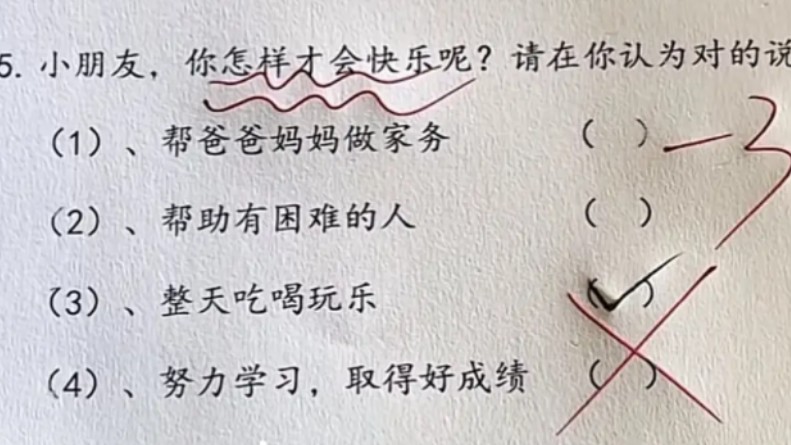 5. 小朋友，你怎样才会快乐呢？请在你认为对的说
（1）、帮爸爸妈妈做家务 （ ） -3
（2）、帮助有困难的人 （ ）
（3）、整天吃喝玩乐 （✓）
（4）、努力学习，取得好成绩 （ ）